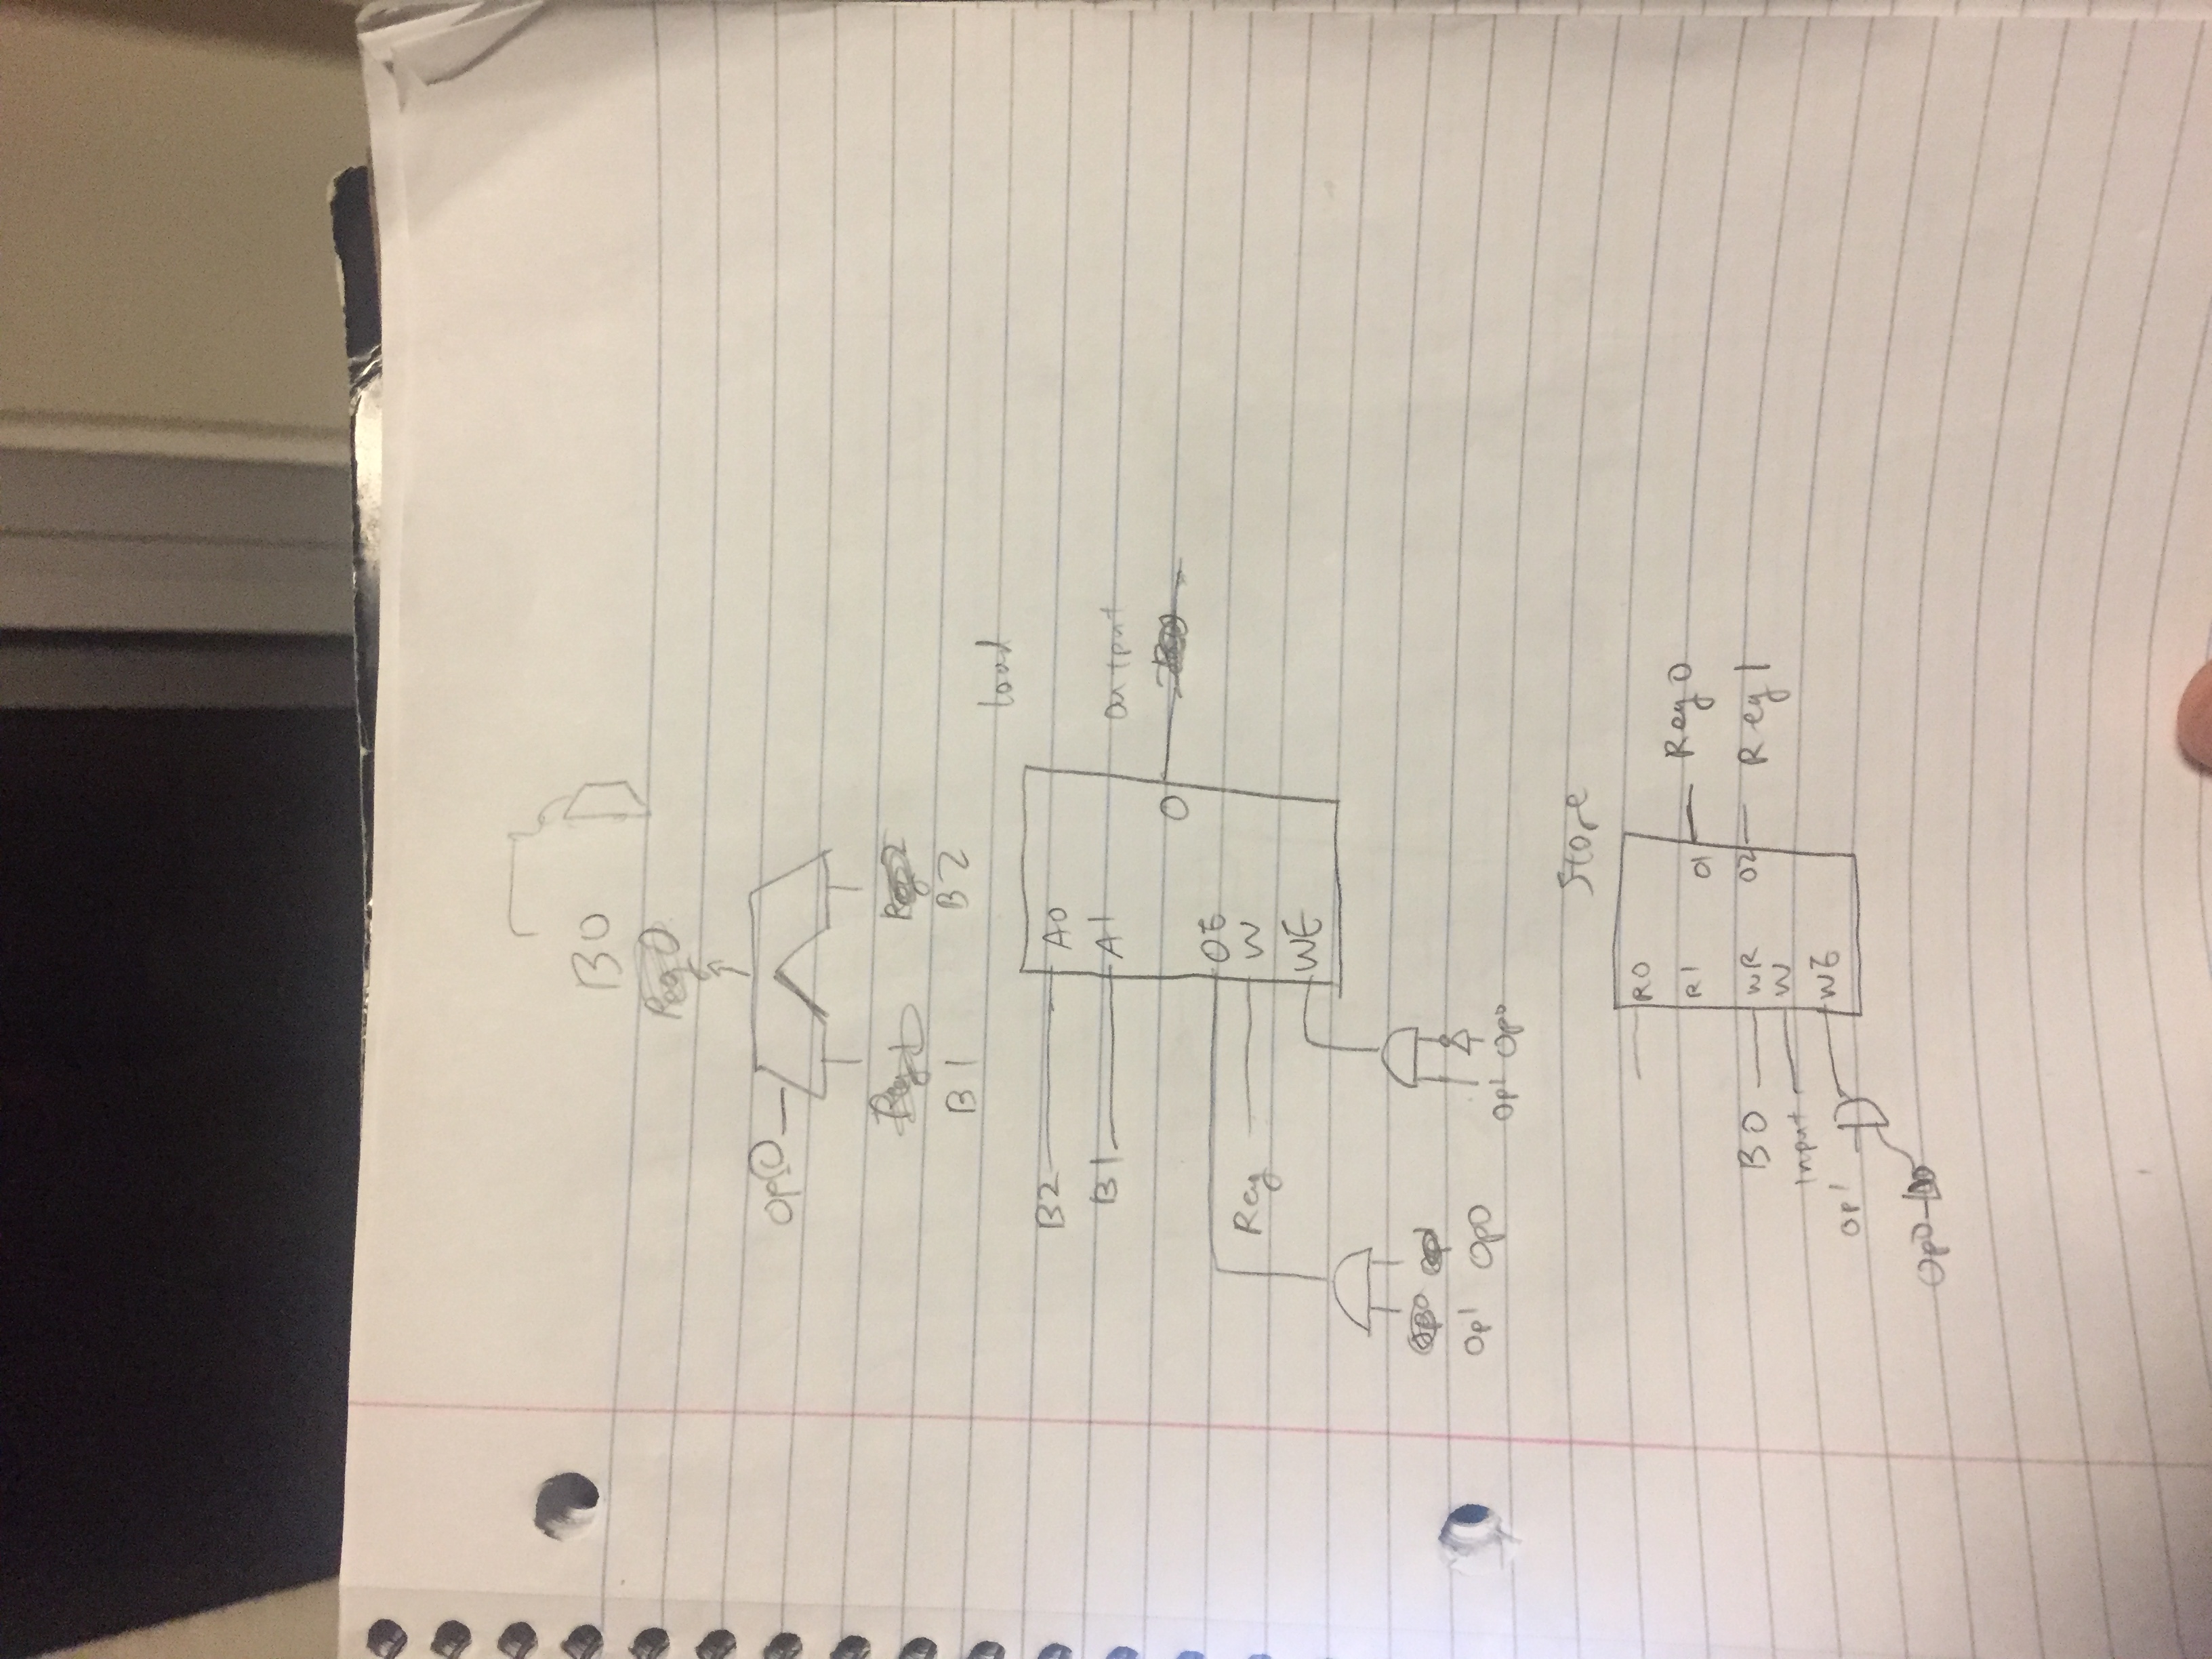 B0
Reg0
Op0
Reg1 Reg2
B1 B2
Load
B2 A0
B1 A1
Output
O
OE
Reg W
WE
Op1 Op0
Op1 Op0
Store
R0
R1 O1 Reg0
B0 WR O2 Reg1
Input W
Op1 WE
Op0